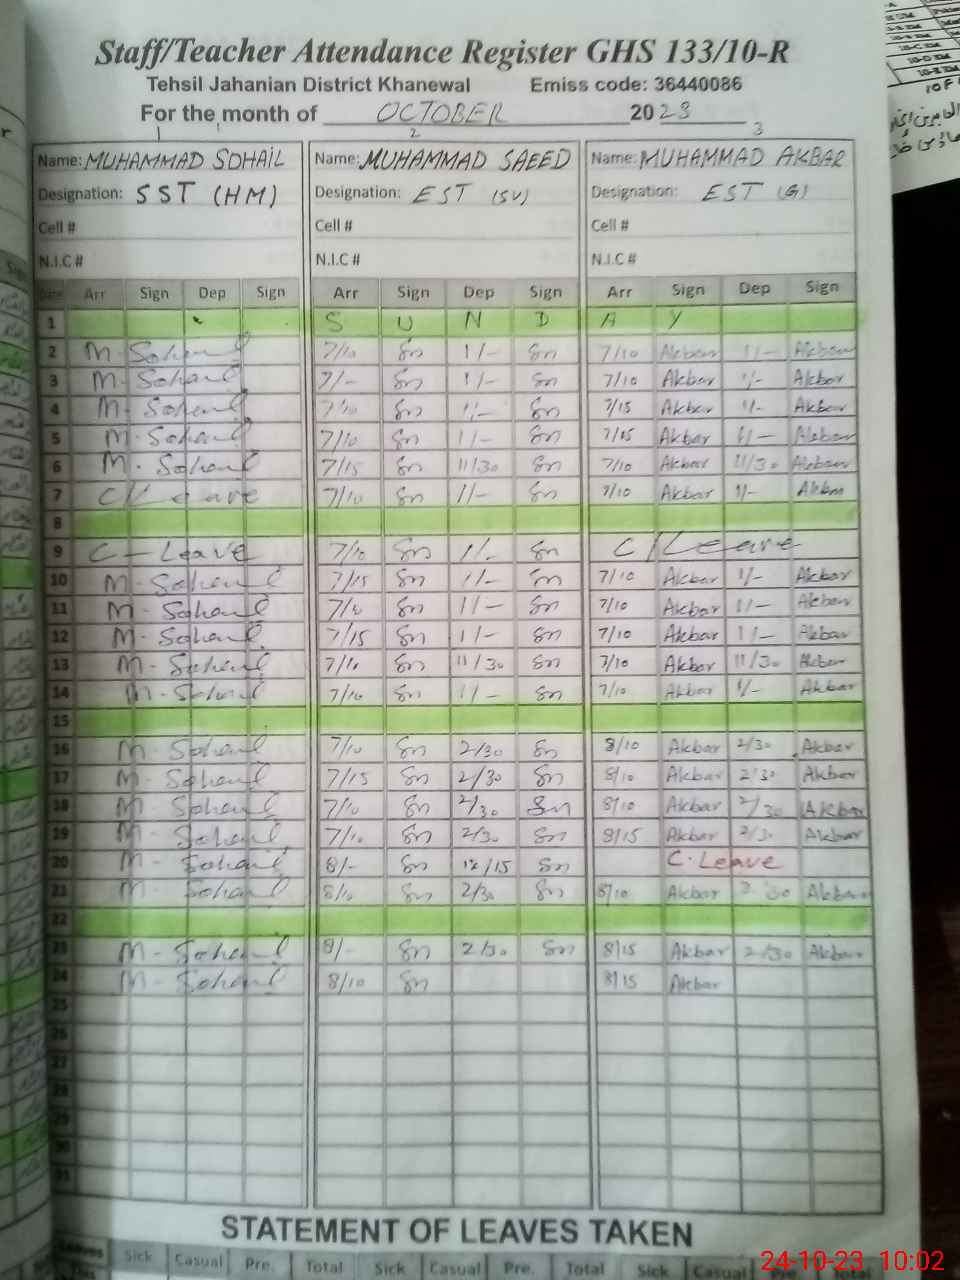 Staff/Teacher Attendance Register GHS 133/10-R
Tehsil Jahanian District Khanewal Emiss code: 36440086
For the month of OCTOBER 2023
1 2 3
Name: MUHAMMAD SOHAIL Name: MUHAMMAD SAEED Name: MUHAMMAD AKBAR
Designation: SST (HM) Designation: EST (SV) Designation: EST (G)
Cell # Cell # Cell #
N.I.C # N.I.C # N.I.C #
Date Arr Sign Dep Sign Arr Sign Dep Sign Arr Sign Dep Sign
1 S U N D A Y
2 M-Sohail 7/10 Sn 1/- Sn 7/10 Akbar 1/- Akbar
3 M-Sohail 7/- Sn 1/- Sn 7/10 Akbar 1/- Akbar
4 M-Sohail 7/10 Sn 1/- Sn 7/15 Akbar 1/- Akbar
5 M-Sohail 7/10 Sn 1/- Sn 7/15 Akbar 1/- Akbar
6 M-Sohail 7/15 Sn 11/30 Sn 7/10 Akbar 11/30 Akbar
7 C/Leave 7/10 Sn 1/- Sn 7/10 Akbar 1/- Akbar
8
9 C-Leave 7/10 Sn 1/- Sn C/Leave
10 M-Sohail 7/15 Sn 1/- Sn 7/10 Akbar 1/- Akbar
11 M-Sohail 7/10 Sn 1/- Sn 7/10 Akbar 1/- Akbar
12 M-Sohail 7/15 Sn 1/- Sn 7/10 Akbar 1/- Akbar
13 M-Sohail 7/10 Sn 11/30 Sn 7/10 Akbar 11/30 Akbar
14 M-Sohail 7/10 Sn 1/- Sn 7/10 Akbar 1/- Akbar
15
16 M-Sohail 7/10 Sn 2/30 Sn 8/10 Akbar 2/30 Akbar
17 M-Sohail 7/15 Sn 2/30 Sn 8/10 Akbar 2/30 Akbar
18 M-Sohail 7/10 Sn 2/30 Sn 8/10 Akbar 2/30 Akbar
19 M-Sohail 7/10 Sn 2/30 Sn 8/15 Akbar 2/30 Akbar
20 M-Sohail 8/- Sn 12/15 Sn C.Leave
21 M-Sohail 8/10 Sn 2/30 Sn 8/10 Akbar 2 30 Akbar
22
23 M-Sohail 8/- Sn 2/30 Sn 8/15 Akbar 2/30 Akbar
24 M-Sohail 8/10 Sn 8/15 Akbar
25
26
27
28
29
30
31
STATEMENT OF LEAVES TAKEN
Leaves Sick Casual Pre. Total Sick Casual Pre. Total Sick Casual
24-10-23 10:02